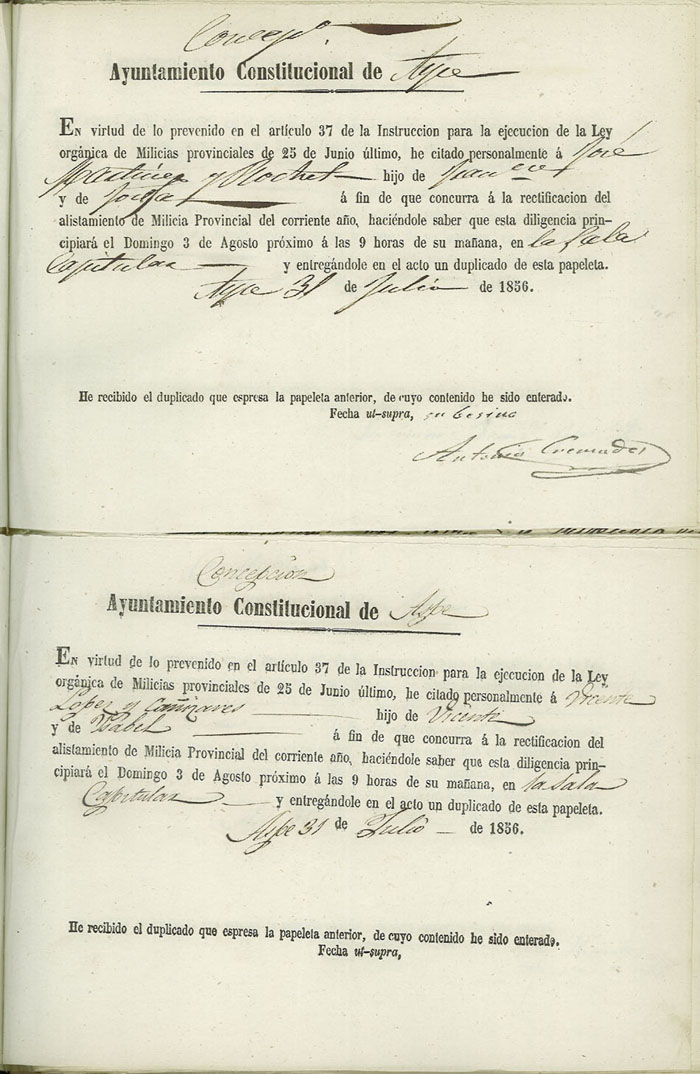 Concepn.
Ayuntamiento Constitucional de Aspe
EN virtud de lo prevenido en el artículo 37 de la Instruccion para la ejecucion de la Ley
orgánica de Milicias provinciales de 25 de Junio último, he citado personalmente á José
Martinez y hijo de Juan
y de á fin de que concurra á la rectificacion del
alistamiento de Milicia Provincial del corriente año, haciéndole saber que esta diligencia prin-
cipiará el Domingo 3 de Agosto próximo á las 9 horas de su mañana, en la Sala
Capitular y entregándole en el acto un duplicado de esta papeleta.
Aspe 31 de Julio de 1856.
He recibido el duplicado que espresa la papeleta anterior, de cuyo contenido he sido enterado.
Fecha ut-supra, su besino
Antonio Cremades
Concepcion
Ayuntamiento Constitucional de Aspe
EN virtud de lo prevenido en el artículo 37 de la Instruccion para la ejecucion de la Ley
orgánica de Milicias provinciales de 25 de Junio último, he citado personalmente á Vicente
Lopez y Cañizares hijo de Vicente
y de Ysabel á fin de que concurra á la rectificacion del
alistamiento de Milicia Provincial del corriente año, haciéndole saber que esta diligencia prin-
cipiará el Domingo 3 de Agosto próximo á las 9 horas de su mañana, en la Sala
Capitular y entregándole en el acto un duplicado de esta papeleta.
Aspe 31 de Julio de 1856.
He recibido el duplicado que espresa la papeleta anterior, de cuyo contenido he sido enterado.
Fecha ut-supra,